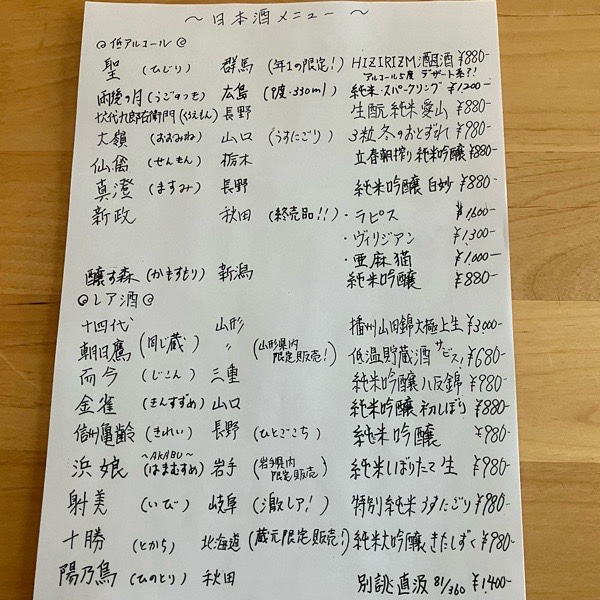 ～日本酒メニュー～
◎低アルコール◎
聖 (ひじり) 群馬 (年1の限定!) HIZIRIZM酒 ¥880-
アルコール5度 デザート系?!
雨後の月 (うごのつき) 広島 (9度・330ml) 純米・スパークリング ¥1,200-
十六代九郎右衛門 (くろえもん) 長野 生酛純米愛山 ¥880-
大嶺 (おおみね) 山口 (うすにごり) 3粒 冬のおとずれ ¥980-
仙禽 (せんきん) 栃木 立春朝搾り 純米吟醸 ¥880-
真澄 (ますみ) 長野 純米吟醸 白妙 ¥880-
新政 秋田 (終売品!!) ・ラピス ¥1,600-
・ヴィリジアン ¥1,300-
・亜麻猫 ¥1,000-
醸す森 (かもすもり) 新潟 純米吟醸 ¥880-
◎レア酒◎
十四代 山形 播州山田錦大極上生 ¥3,000-
朝日鷹 (同じ蔵) 〃 (山形県内限定販売!) 低温貯蔵酒 サービス! ¥680-
而今 (じこん) 三重 純米吟醸 八反錦 ¥980-
金雀 (きんすずめ) 山口 純米吟醸 初しぼり ¥880-
信州亀齢 (きれい) 長野 (ひとごこち) 純米吟醸 ¥980-
～AKABU～
浜娘 (はまむすめ) 岩手 (岩手県内限定販売) 純米しぼりたて生 ¥980-
射美 (いび) 岐阜 (激レア!) 特別純米うすにごり ¥980-
十勝 (とかち) 北海道 (蔵元限定販売!) 純米大吟醸 きたしずく ¥980-
陽乃鳥 (ひのとり) 秋田 別誂直汲 81/360 ¥1,400-